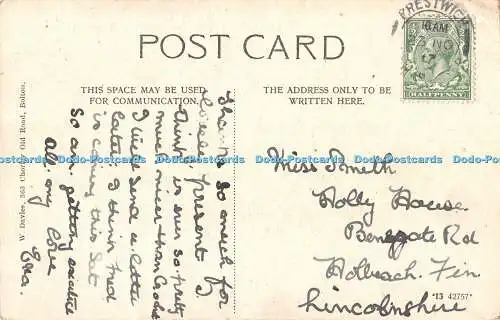 PRESTWICK
POST CARD
THIS SPACE MAY BE USED
FOR COMMUNICATION.
THE ADDRESS ONLY TO BE
WRITTEN HERE.
HALFPENNY
W. Davies, 363 Chorley Old Road, Bolton.
Thanks so much for
lovely present I
think it is ever so pretty
much nicer than Crochet
I will send a letter
later I think Fred
is coming this Sat
So am getting excited
All my love
Eva.
Miss Smith
Holly House
Benegate Rd
Holbeach. Fen
Lincolnshire
'13 42757'
Dodo-Postcards Dodo-Postcards Dodo-Postcards Dodo-Postcards Dodo-Postcards